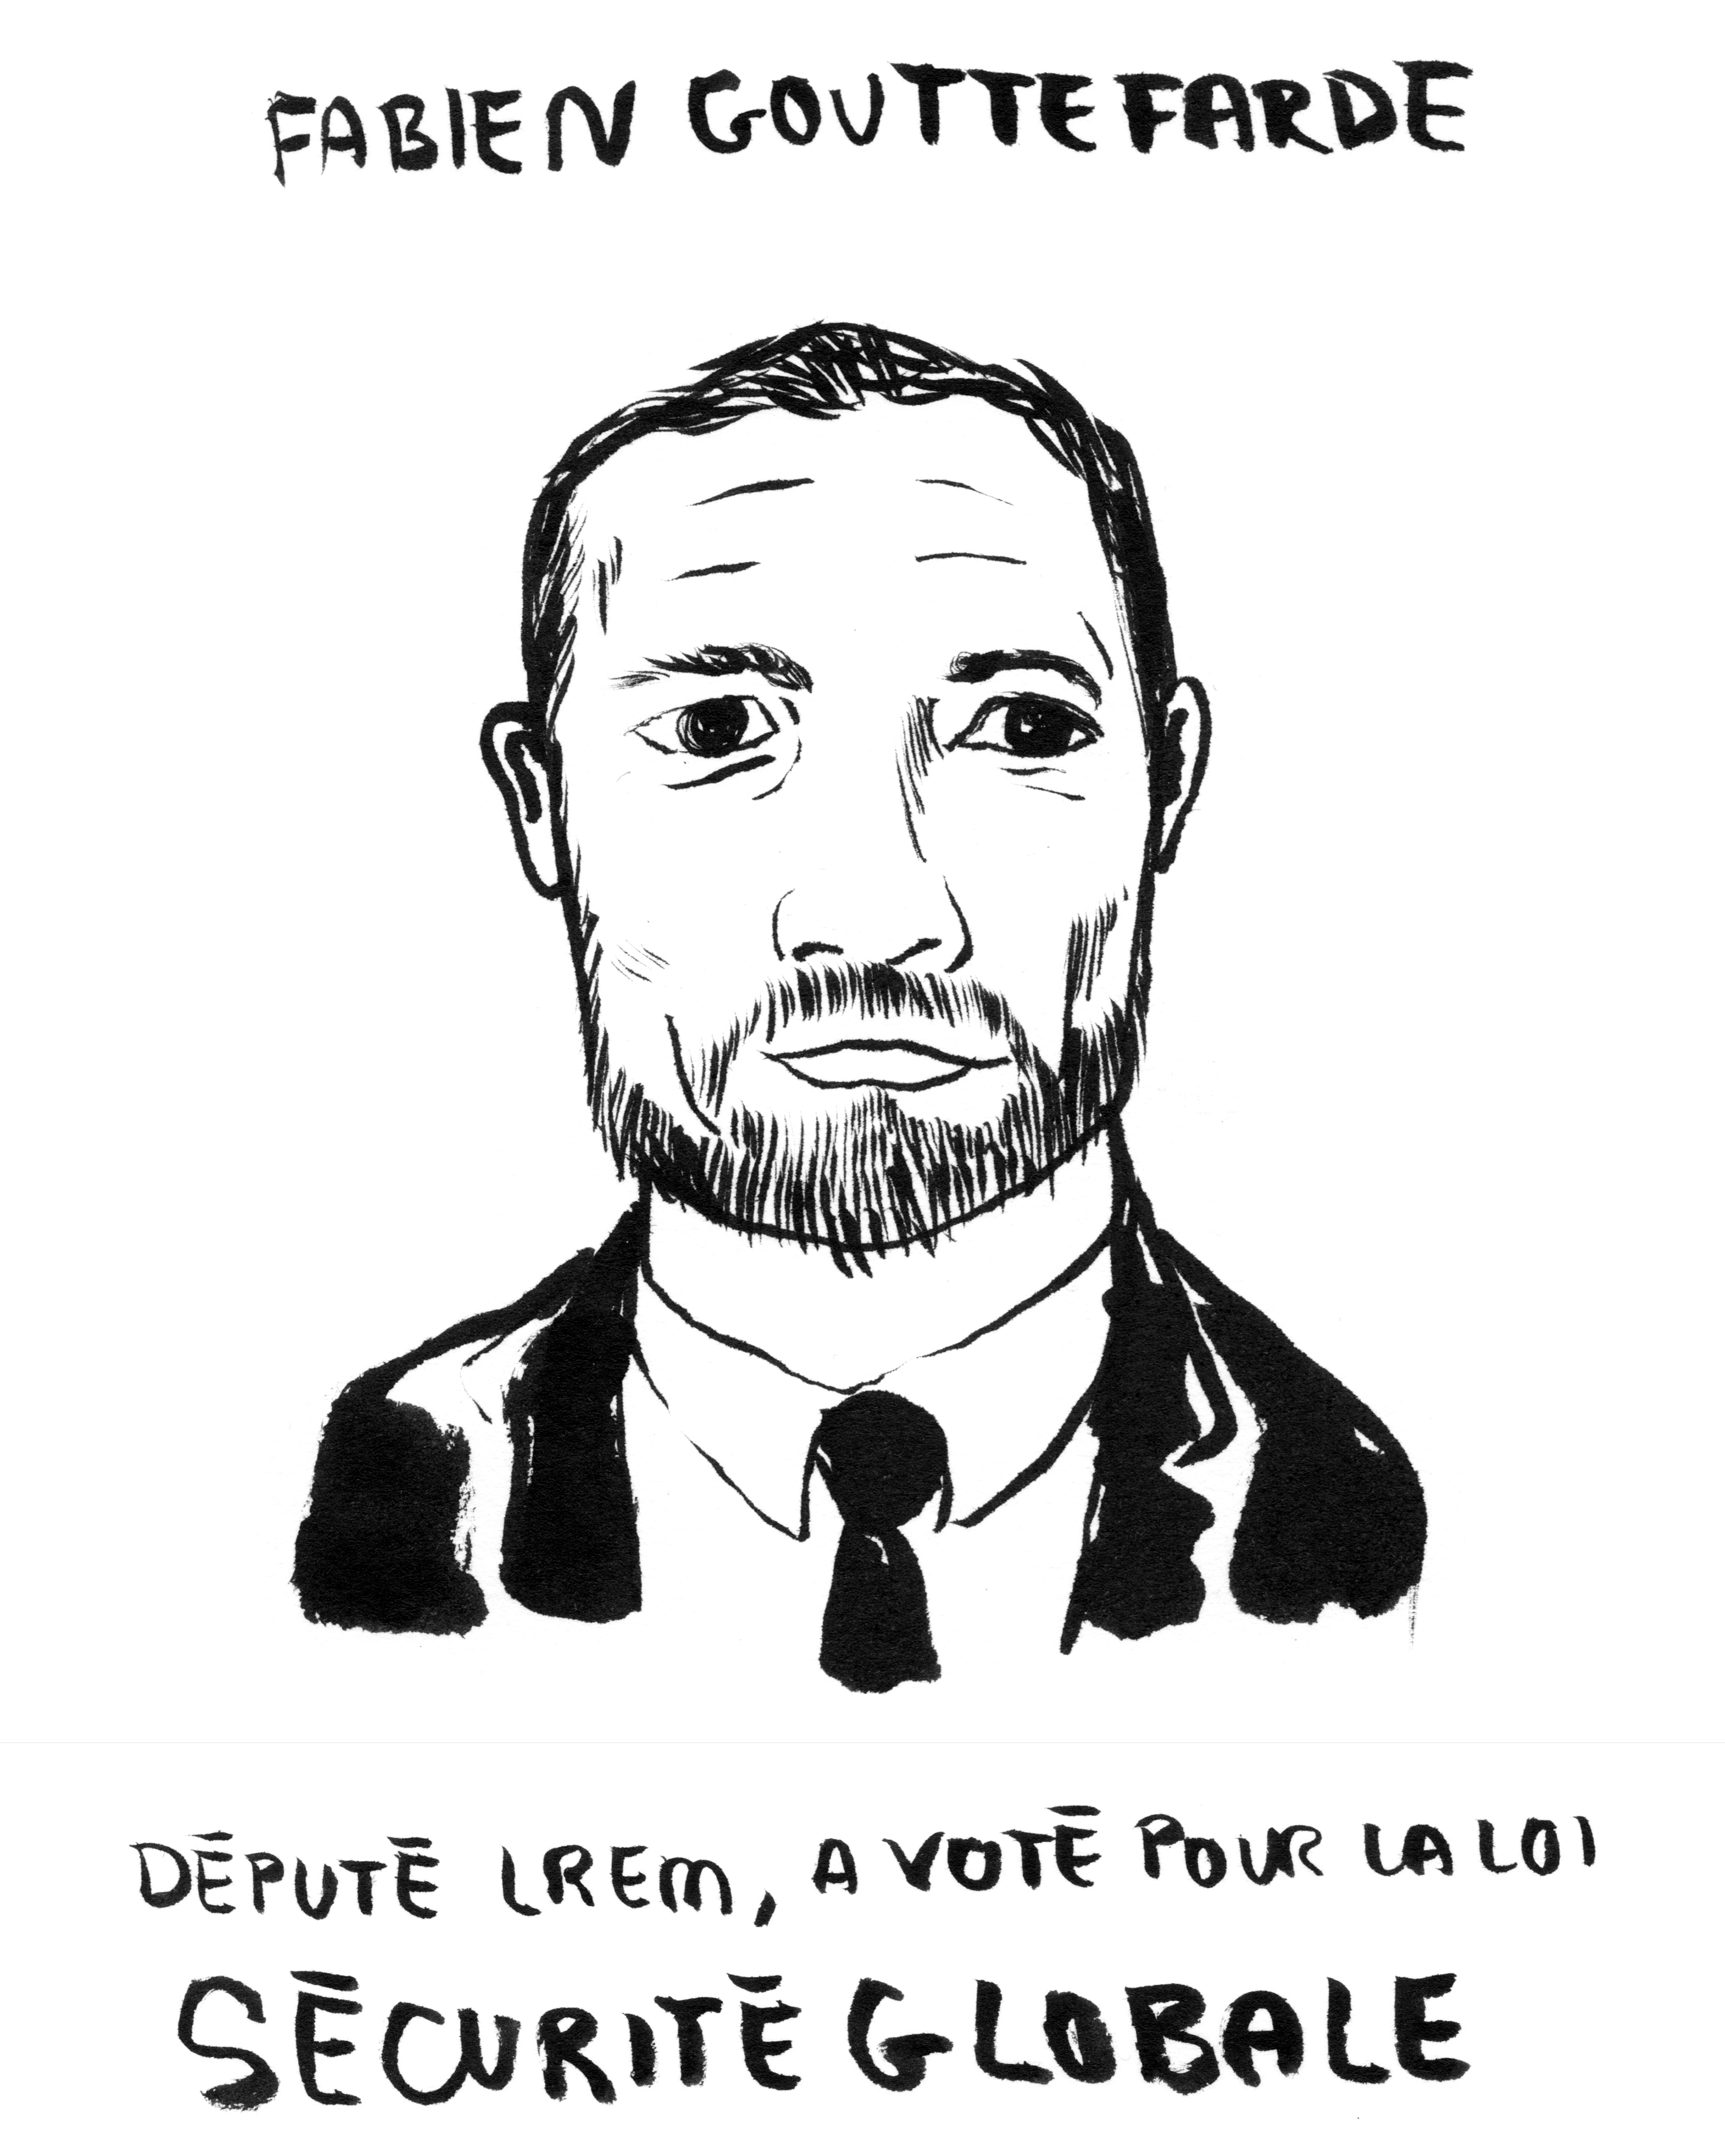 FABIEN GOUTTEFARDE
DÉPUTÉ LREM, A VOTÉ POUR LA LOI
SÉCURITÉ GLOBALE